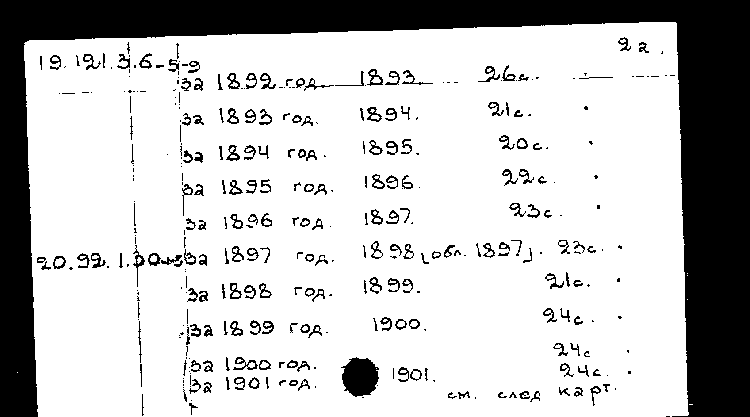 2а.
19.121.3.6-5-9
за 1892 год. 1893. 26с.
за 1893 год. 1894. 21с.
за 1894 год. 1895. 20с.
за 1895 год. 1896. 22с.
за 1896 год. 1897. 23с.
20.92.1. за 1897 год. 1898 [обл. 1897]. 23с.
за 1898 год. 1899. 21с.
за 1899 год. 1900. 24с.
за 1900 год. 24с
за 1901 год. 1901. 24с.
см. след карт.